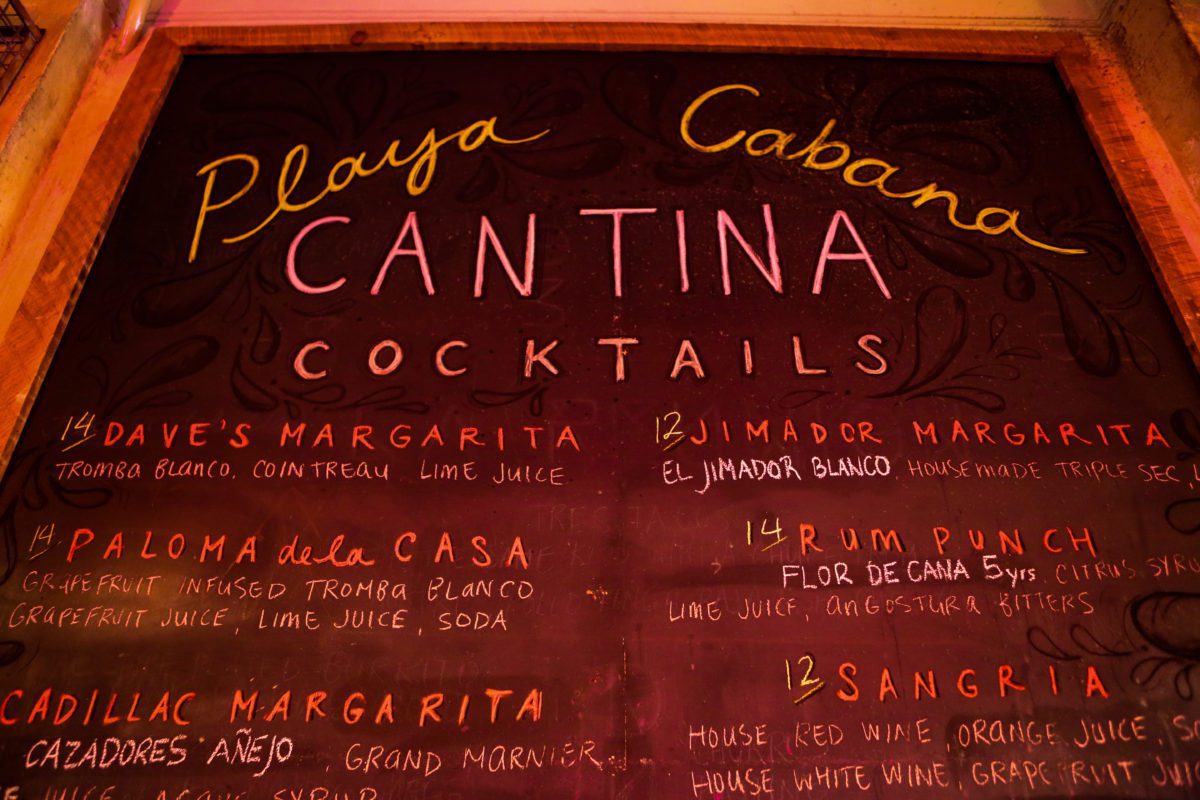 Playa Cabana
CANTINA
COCKTAILS
14 DAVE'S MARGARITA
TROMBA BLANCO, COINTREAU LIME JUICE
14 PALOMA de la CASA
GRAPEFRUIT INFUSED TROMBA BLANCO
GRAPEFRUIT JUICE, LIME JUICE, SODA
CADILLAC MARGARITA
CAZADORES AÑEJO, GRAND MARNIER
JUICE AGAVE SYRUP
12 JIMADOR MARGARITA
EL JIMADOR BLANCO, HOUSEMADE TRIPLE SEC,
14 RUM PUNCH
FLOR DE CANA 5yrs, CITRUS
LIME JUICE, ANGOSTURA BITTERS
12 SANGRIA
HOUSE RED WINE, ORANGE JUICE,
HOUSE WHITE WINE, GRAPEFRUIT